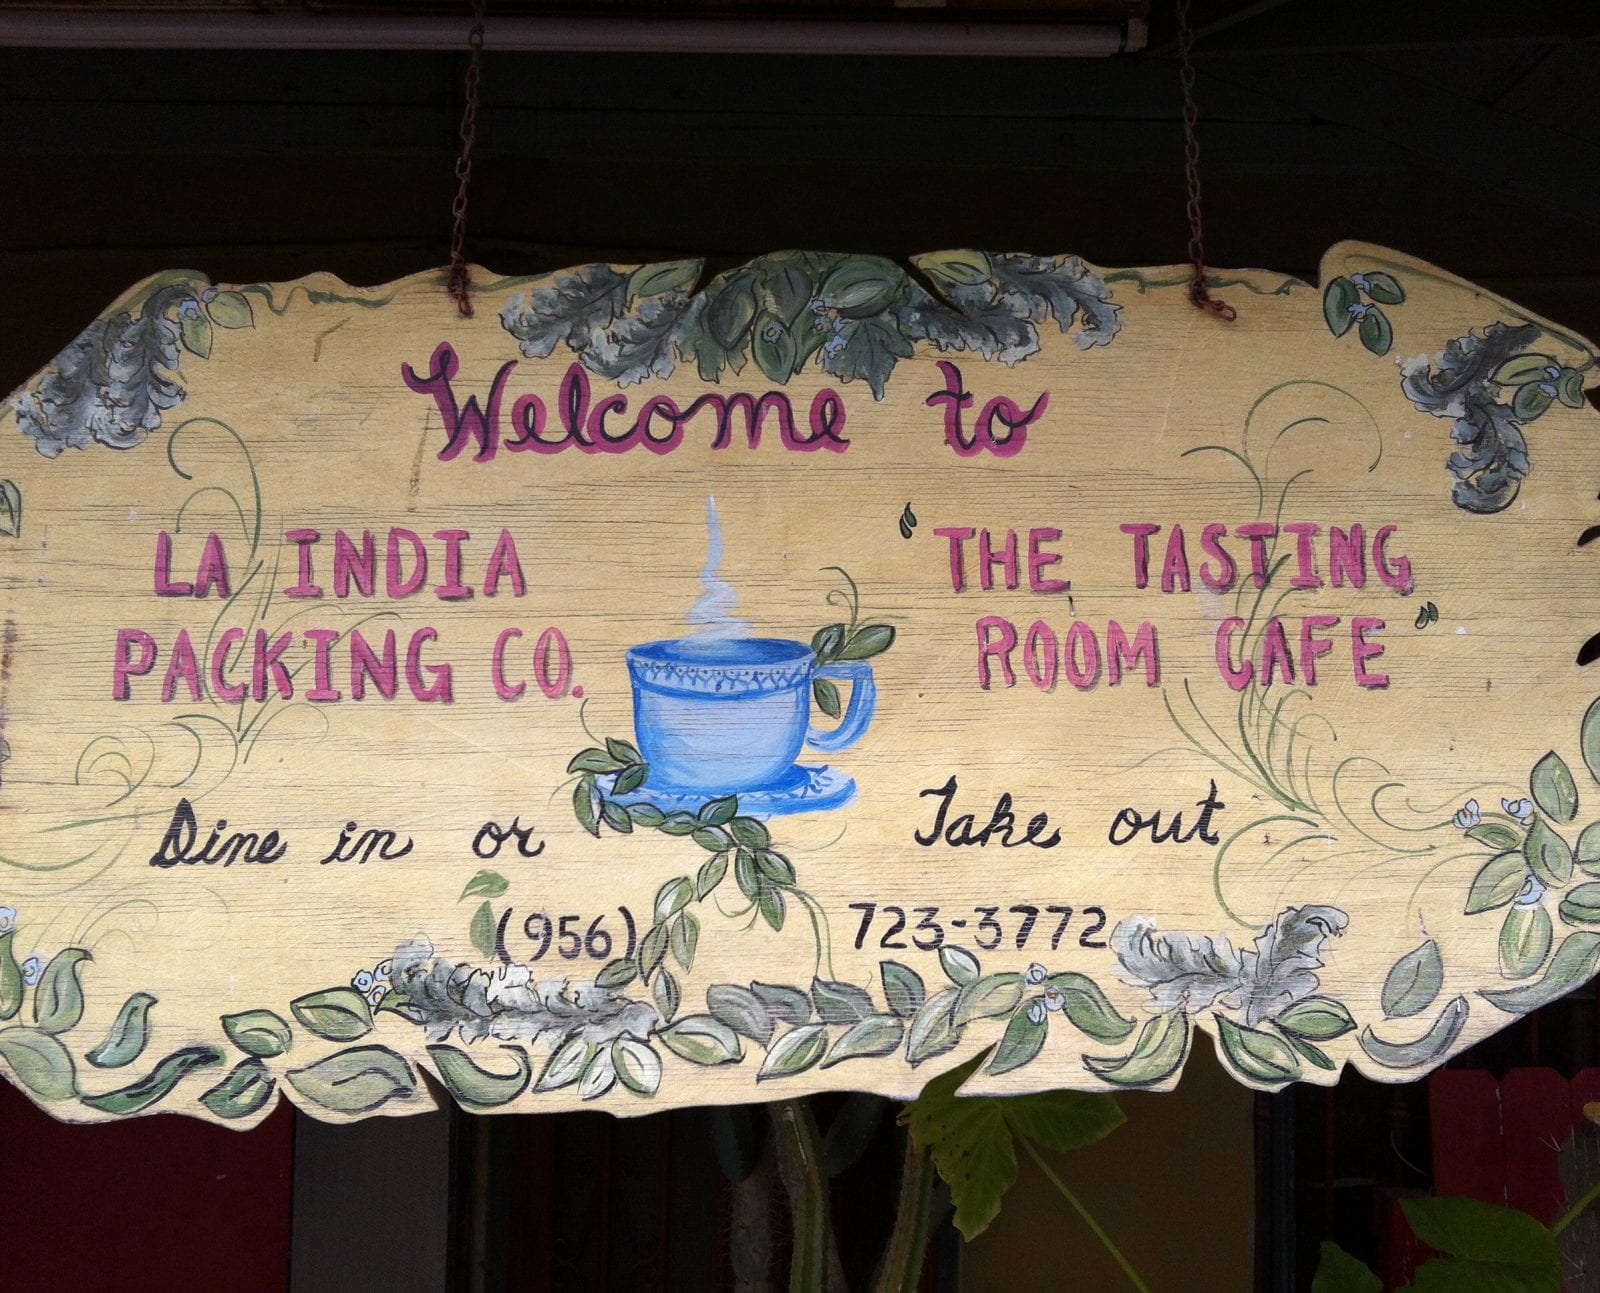 Welcome to
LA INDIA
PACKING CO.
"THE TASTING
ROOM CAFE"
Dine in or Take out
(956) 723-3772